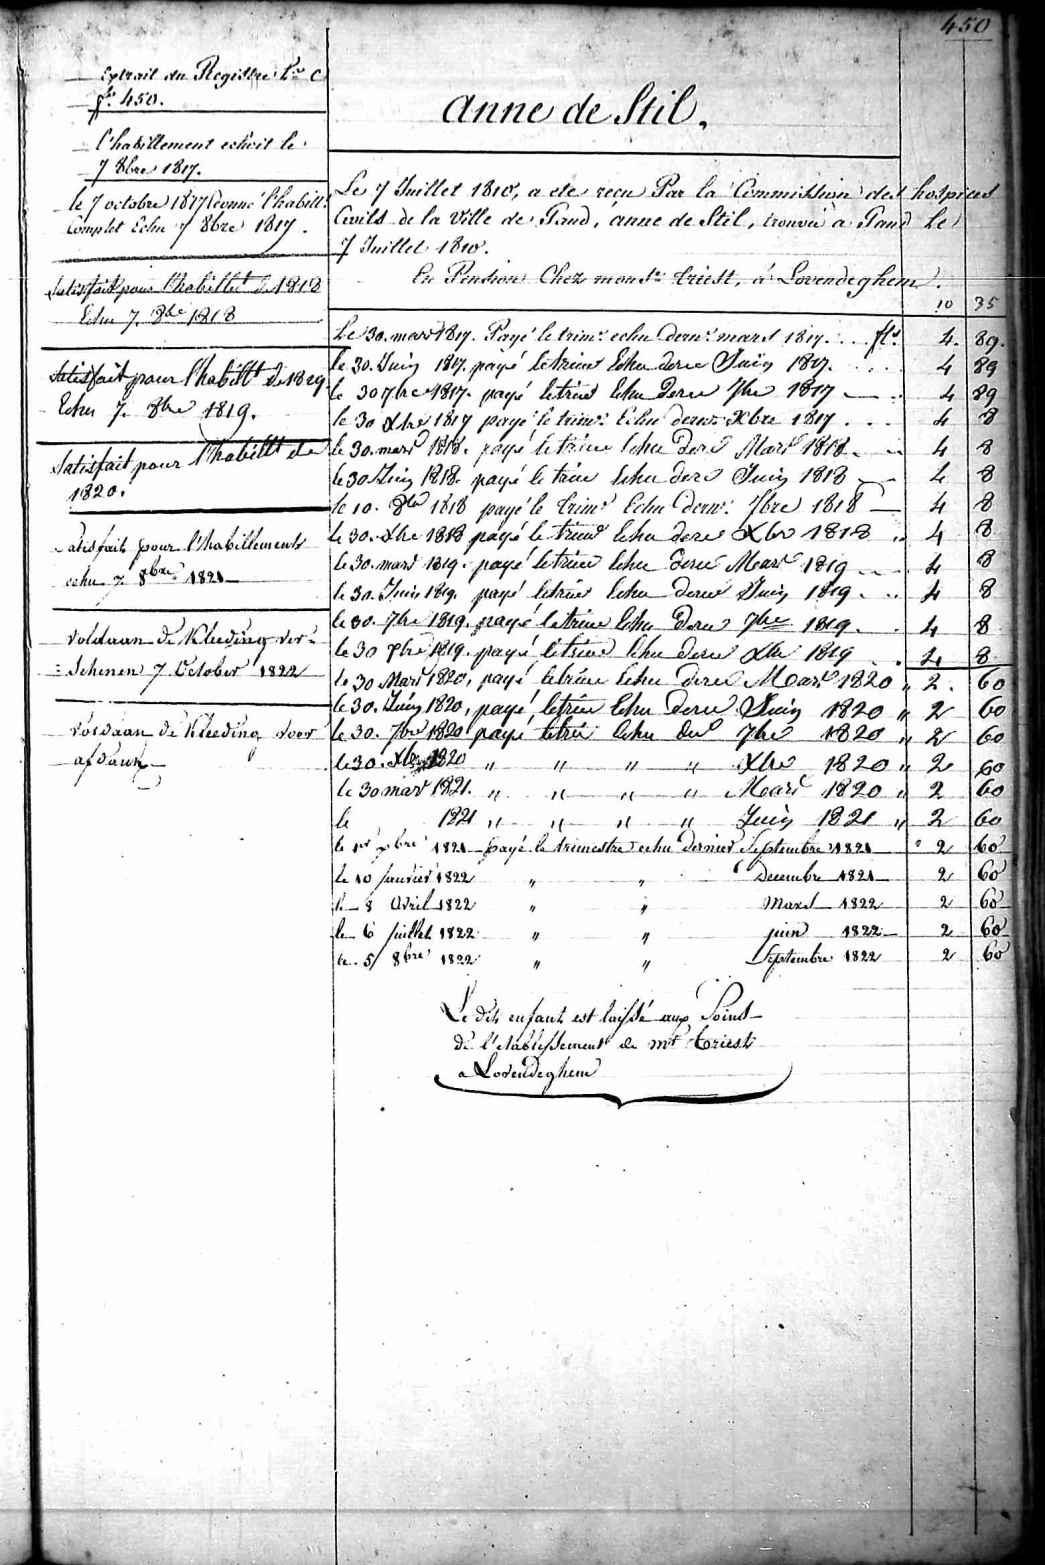 450
Extrait du Registre Ln C
fo. 450.
l'habillement echoit le
7 8bre 1817.
le 7 octobre 1817 donné l'habill.
Complet Echu 7 8bre 1817.
Satisfait pour l'habillt de 1818
Echu 7. 8bre 1818
Satisfait pour l'habillt de 1819
Echu 7. 8bre 1819.
Satisfait pour l'habillt de
1820.
satisfait pour l'habillements
echu 7 8bre 1821
voldaan de Kleeding ver-
schenen 7 October 1822
voldaan de Kleeding voor
afdank
Anne de Stil.
Le 7 Juillet 1810, a eté reçu Par la Commission des hospices
Civils de la Ville de Gand, anne de Stil, trouvée a Gand Le
7 Juillet 1810.
En Pension Chez monsr. triest, à Lovendeghem.
10 35
Le 30. mars 1817. Payé le trimr. echu dernr. mars 1817. . . . fls 4. 89.
le 30. Juin 1817. payé le trime Echu dere Juin 1817. . . . 4 89
le 30 7bre 1817. payé le trime Echu dere 7bre 1817 4 89
le 30 Xbre 1817 payé le trimr. Echu dernr. Xbre 1817 . . . 4 8
le 30. mars 1818. payé le trime Echu dere Mars 1818 4 8
le 30 Juin 1818. payé le trime Echu dere Juin 1818 4 8
le 10. 8bre 1818 payé le trimr Echu dernr. 7bre 1818 4 8
le 30. Xbre 1818 payé le trime Echu dere Xbre 1818 4 8
le 30. mars 1819. payé le trime Echu dere Mars 1819 4 8
le 30. Juin 1819. payé le trime Echu dere Juin 1819 4 8
le 30. 7bre 1819. payé le trime Echu dere 7bre 1819 4 8
le 30 1819. payé le trime Echu dere Xbre 1819 4 8
le 30 Mars 1820, payé le trime Echu dere Mars 1820 " 2. 60
le 30. Juin 1820, payé le trime Echu dere Juin 1820 " 2 60
le 30. 7bre 1820 payé le trime Echu der 7bre 1820 " 2 60
le 30. Xbre 1820 " " " " Xbre 1820 " 2 60
le 30 mars 1821. " " " " Mars 1820 " 2 60
le 1821 " " " " Juin 1821 " 2 60
le 1er 1821 payé le trimestre echu dernier Septembre 1821 " 2 60
le 10 janvier 1822 " " Decembre 1821 2 60
le 8 Avril 1822 " " Mars 1822 2 60
le 6 juillet 1822 " " juin 1822 2 60
le 5 8bre 1822 " " Septembre 1822 2 60
Le dit enfant est laissé aux Soins
de l'etablissement de Mr Triest
a Lovendeghem